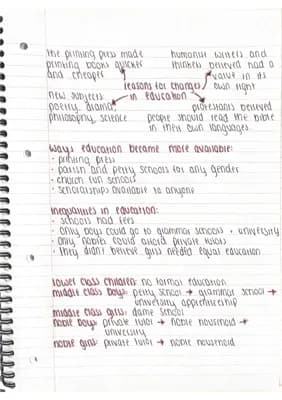 the printing press made
printing books quicker
and cheaper
humanist writers and
thinkers believed had a
value in its
own right
reasons for changes
in education
new subjects:
poetry, drama,
philosophy, science
protestants believed
people should read the bible
in their own languages.
ways education became more available:
· printing press
· parish and petty schools for any gender
· church run schools
· scholarships available to anyone
inequalities in education:
· schools had fees
· only boys could go to grammar schools + university
· only nobles could afford private tutors
· they didn't believe girls needed equal education
lower class children: no formal education
middle class boys: petty school → grammar school →
university apprenticeship
middle class girls: dame school
noble boys: private tutor → noble household →
university
noble girls: private tutor → noble household